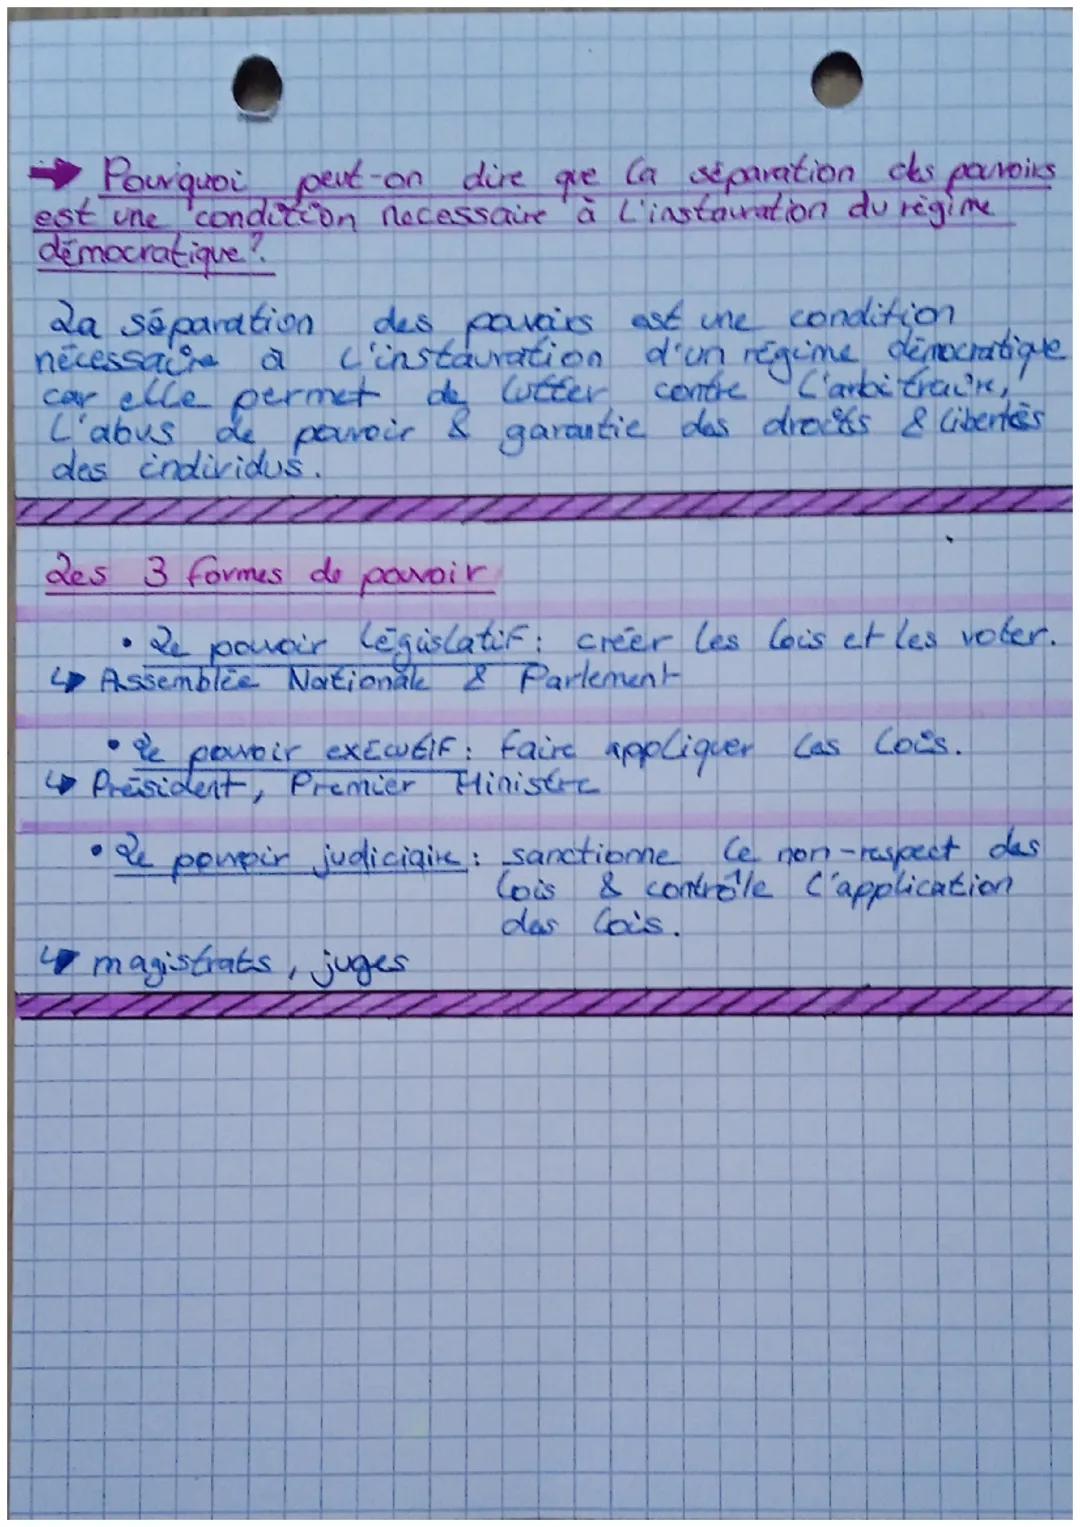 → Pourquoi peut-on dire que la séparation des pouvoirs
est une condition necessaire à l'instauration du régime
démocratique?
La séparation des pouvoirs est une condition
nécessaire à l'instauration d'un régime démocratique
car elle permet de lutter contre l'arbitraire,
l'abus de pouvoir & garantie des droits & libertés
des individus.
Les 3 formes de pouvoir
• Le pouvoir législatif : créer les lois et les voter.
↳ Assemblée Nationale & Parlement
• Le pouvoir exécutif : faire appliquer les lois.
↳ Président, Premier Ministre
• Le pouvoir judiciaire : sanctionne le non-respect des
lois & contrôle l'application
des lois.
↳ magistrats, juges